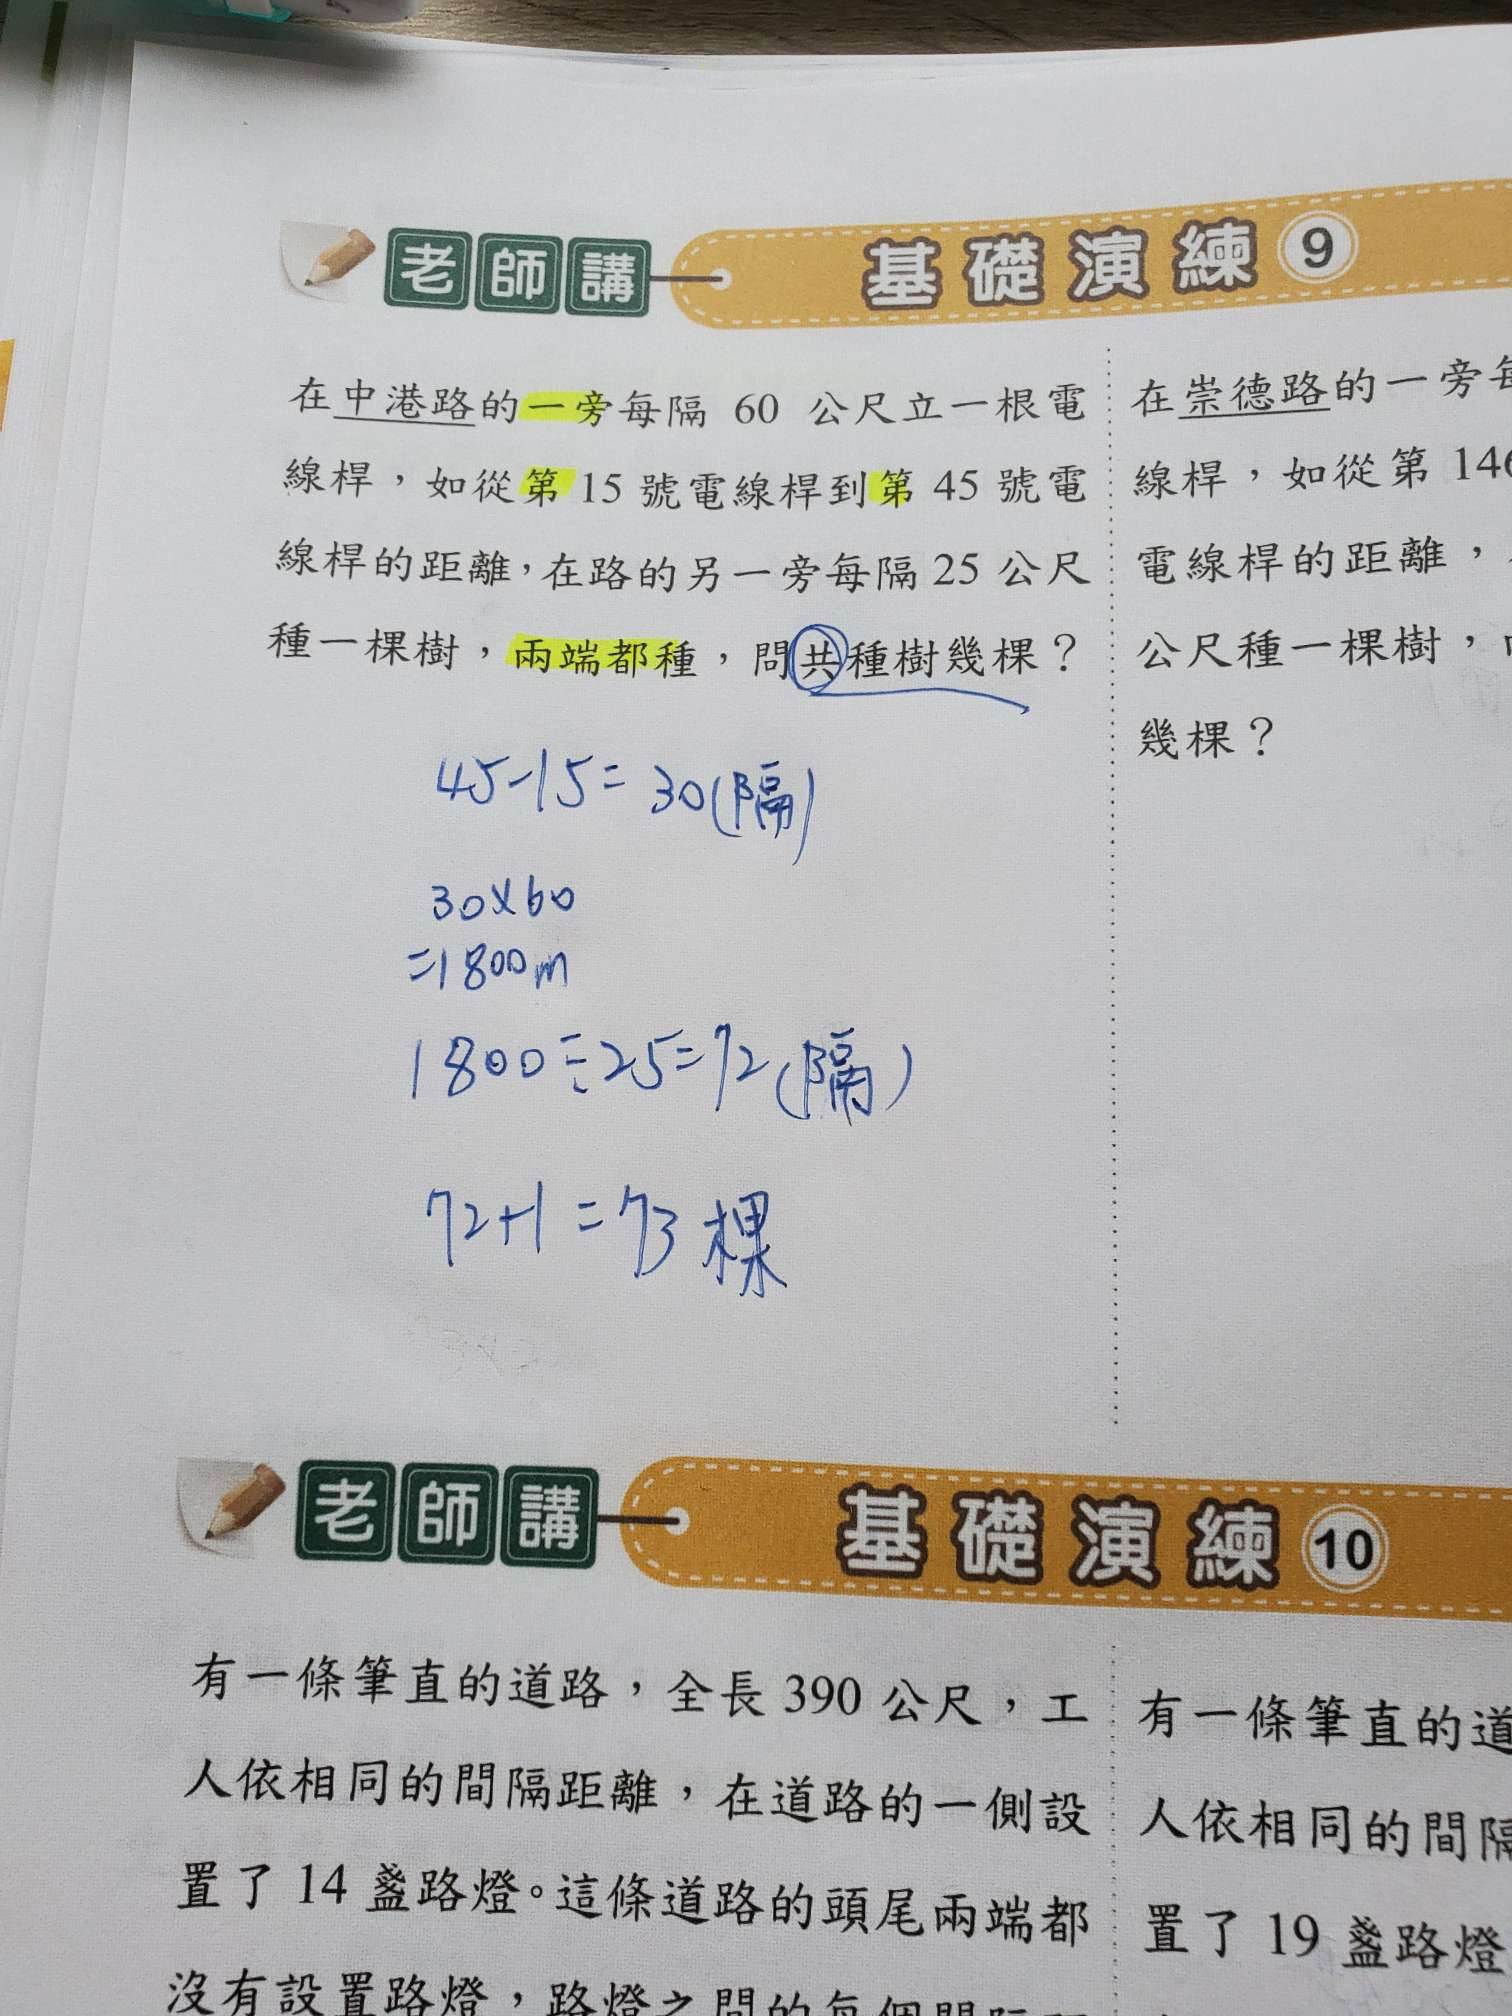 老師講 基礎演練 9
在中港路的一旁每隔 60 公尺立一根電
線桿，如從第 15 號電線桿到第 45 號電
線桿的距離，在路的另一旁每隔 25 公尺
種一棵樹，兩端都種，問共種樹幾棵？
45-15=30(隔)
30×60
=1800m
1800÷25=72(隔)
72+1=73棵
在崇德路的一旁每
線桿，如從第 146
電線桿的距離，
公尺種一棵樹，
幾棵？
老師講 基礎演練 10
有一條筆直的道路，全長 390 公尺，工
人依相同的間隔距離，在道路的一側設
置了 14 盞路燈。這條道路的頭尾兩端都
沒有設置路燈，路燈之間的每個間隔
有一條筆直的道
人依相同的間隔
置了 19 盞路燈